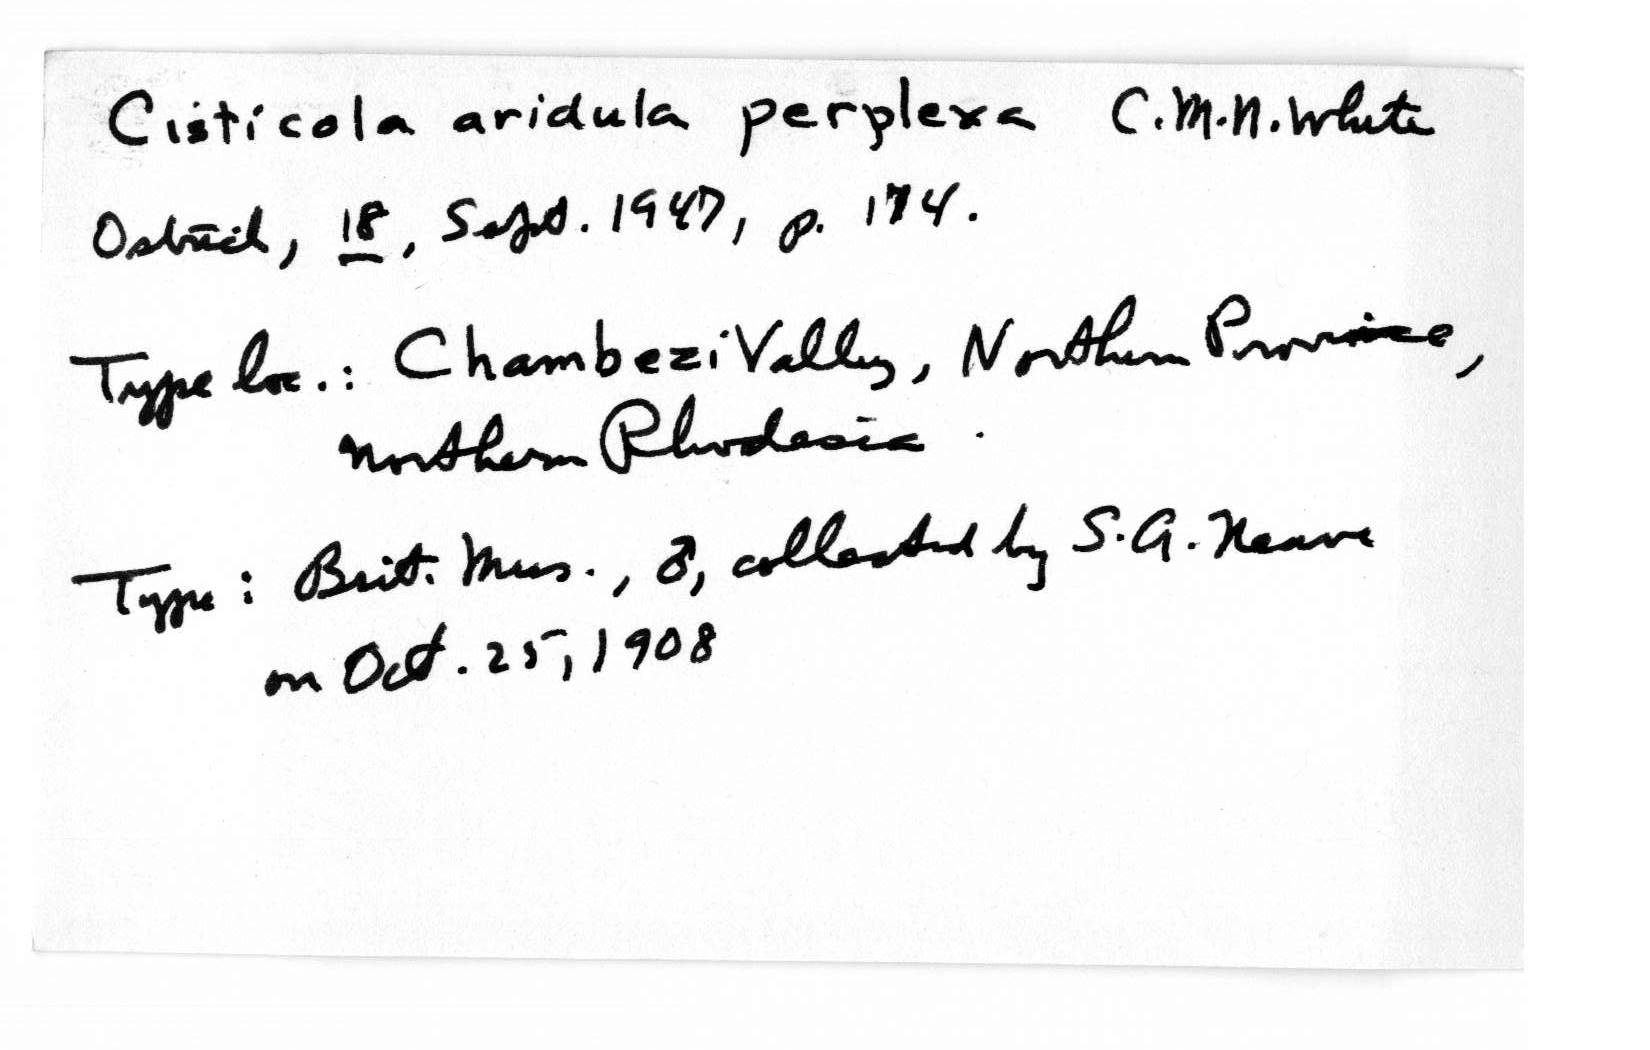 Cisticola aridula perplexa C.M.N. White
Ostrich, 18, Sept. 1947, p. 174.
Type loc.: Chambezi Valley, Northern Province,
Northern Rhodesia.
Type: Brit. Mus., ♂, collected by S.A. Neave
on Oct. 25, 1908